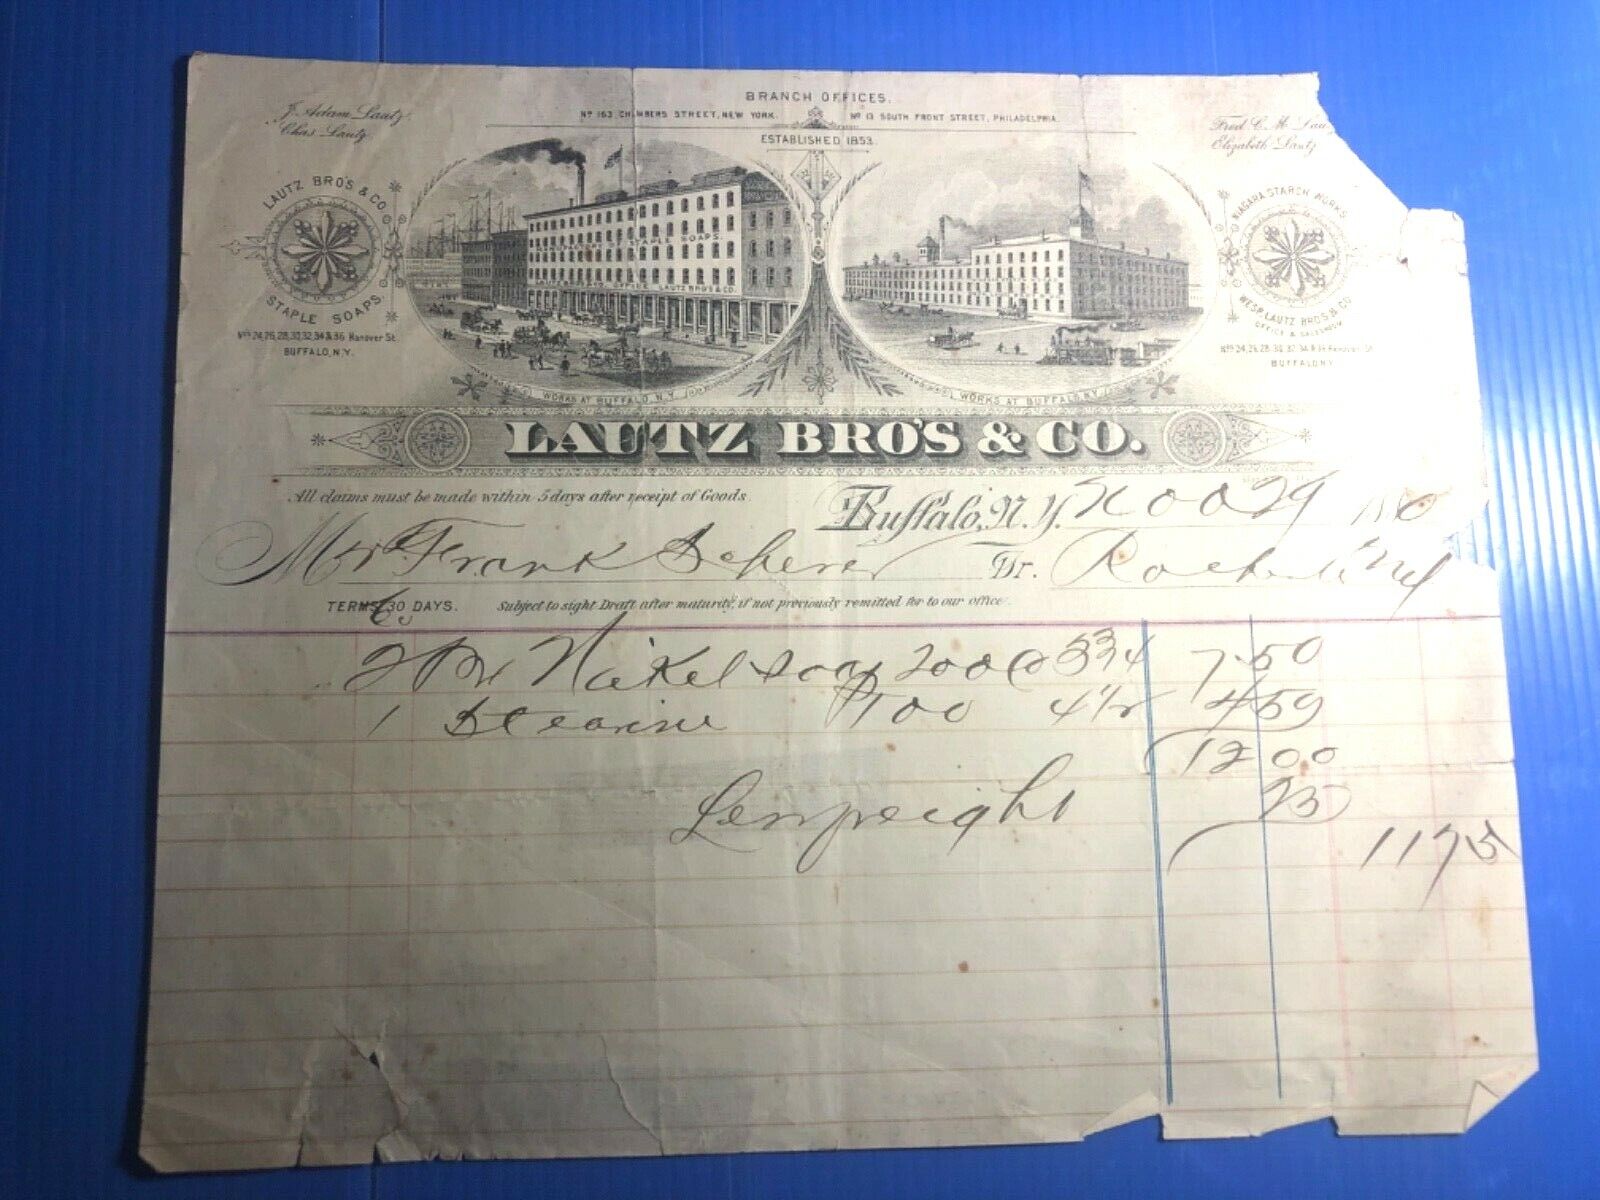 BRANCH OFFICES.
Nº 163 CHAMBERS STREET, NEW YORK. Nº 13 SOUTH FRONT STREET, PHILADELPHIA.
ESTABLISHED 1853.
J. Adam Lautz
Chas. Lautz
Fred C. M. Lau
Elizabeth Lautz
LAUTZ BRO'S & CO.
STAPLE SOAPS.
Nos 24,26,28,30,32,34 & 36 Hanover St.
BUFFALO, N.Y.
STAPLE SOAPS
OFFICE LAUTZ BRO'S & CO.
WORKS AT BUFFALO, N.Y.
WORKS AT BUFFALO, N.Y.
NIAGARA STARCH WORKS
LAUTZ BRO'S & CO
OFFICE & SALESROOM
Nos 24,26,28,30,32,34 & 36 Hanover St.
BUFFALO N.Y.
LAUTZ BRO'S & CO.
All claims must be made within 5 days after receipt of Goods.
Buffalo, N.Y. 29 188
Mr Frank Scherer Dr.
TERMS 30 DAYS. Subject to sight Draft after maturity, if not previously remitted for to our office.
2 Nickel Soap 200 @ 3 3/4 7.50
1 Stearine 100 4 1/2 4 50
12 00
25
11 75